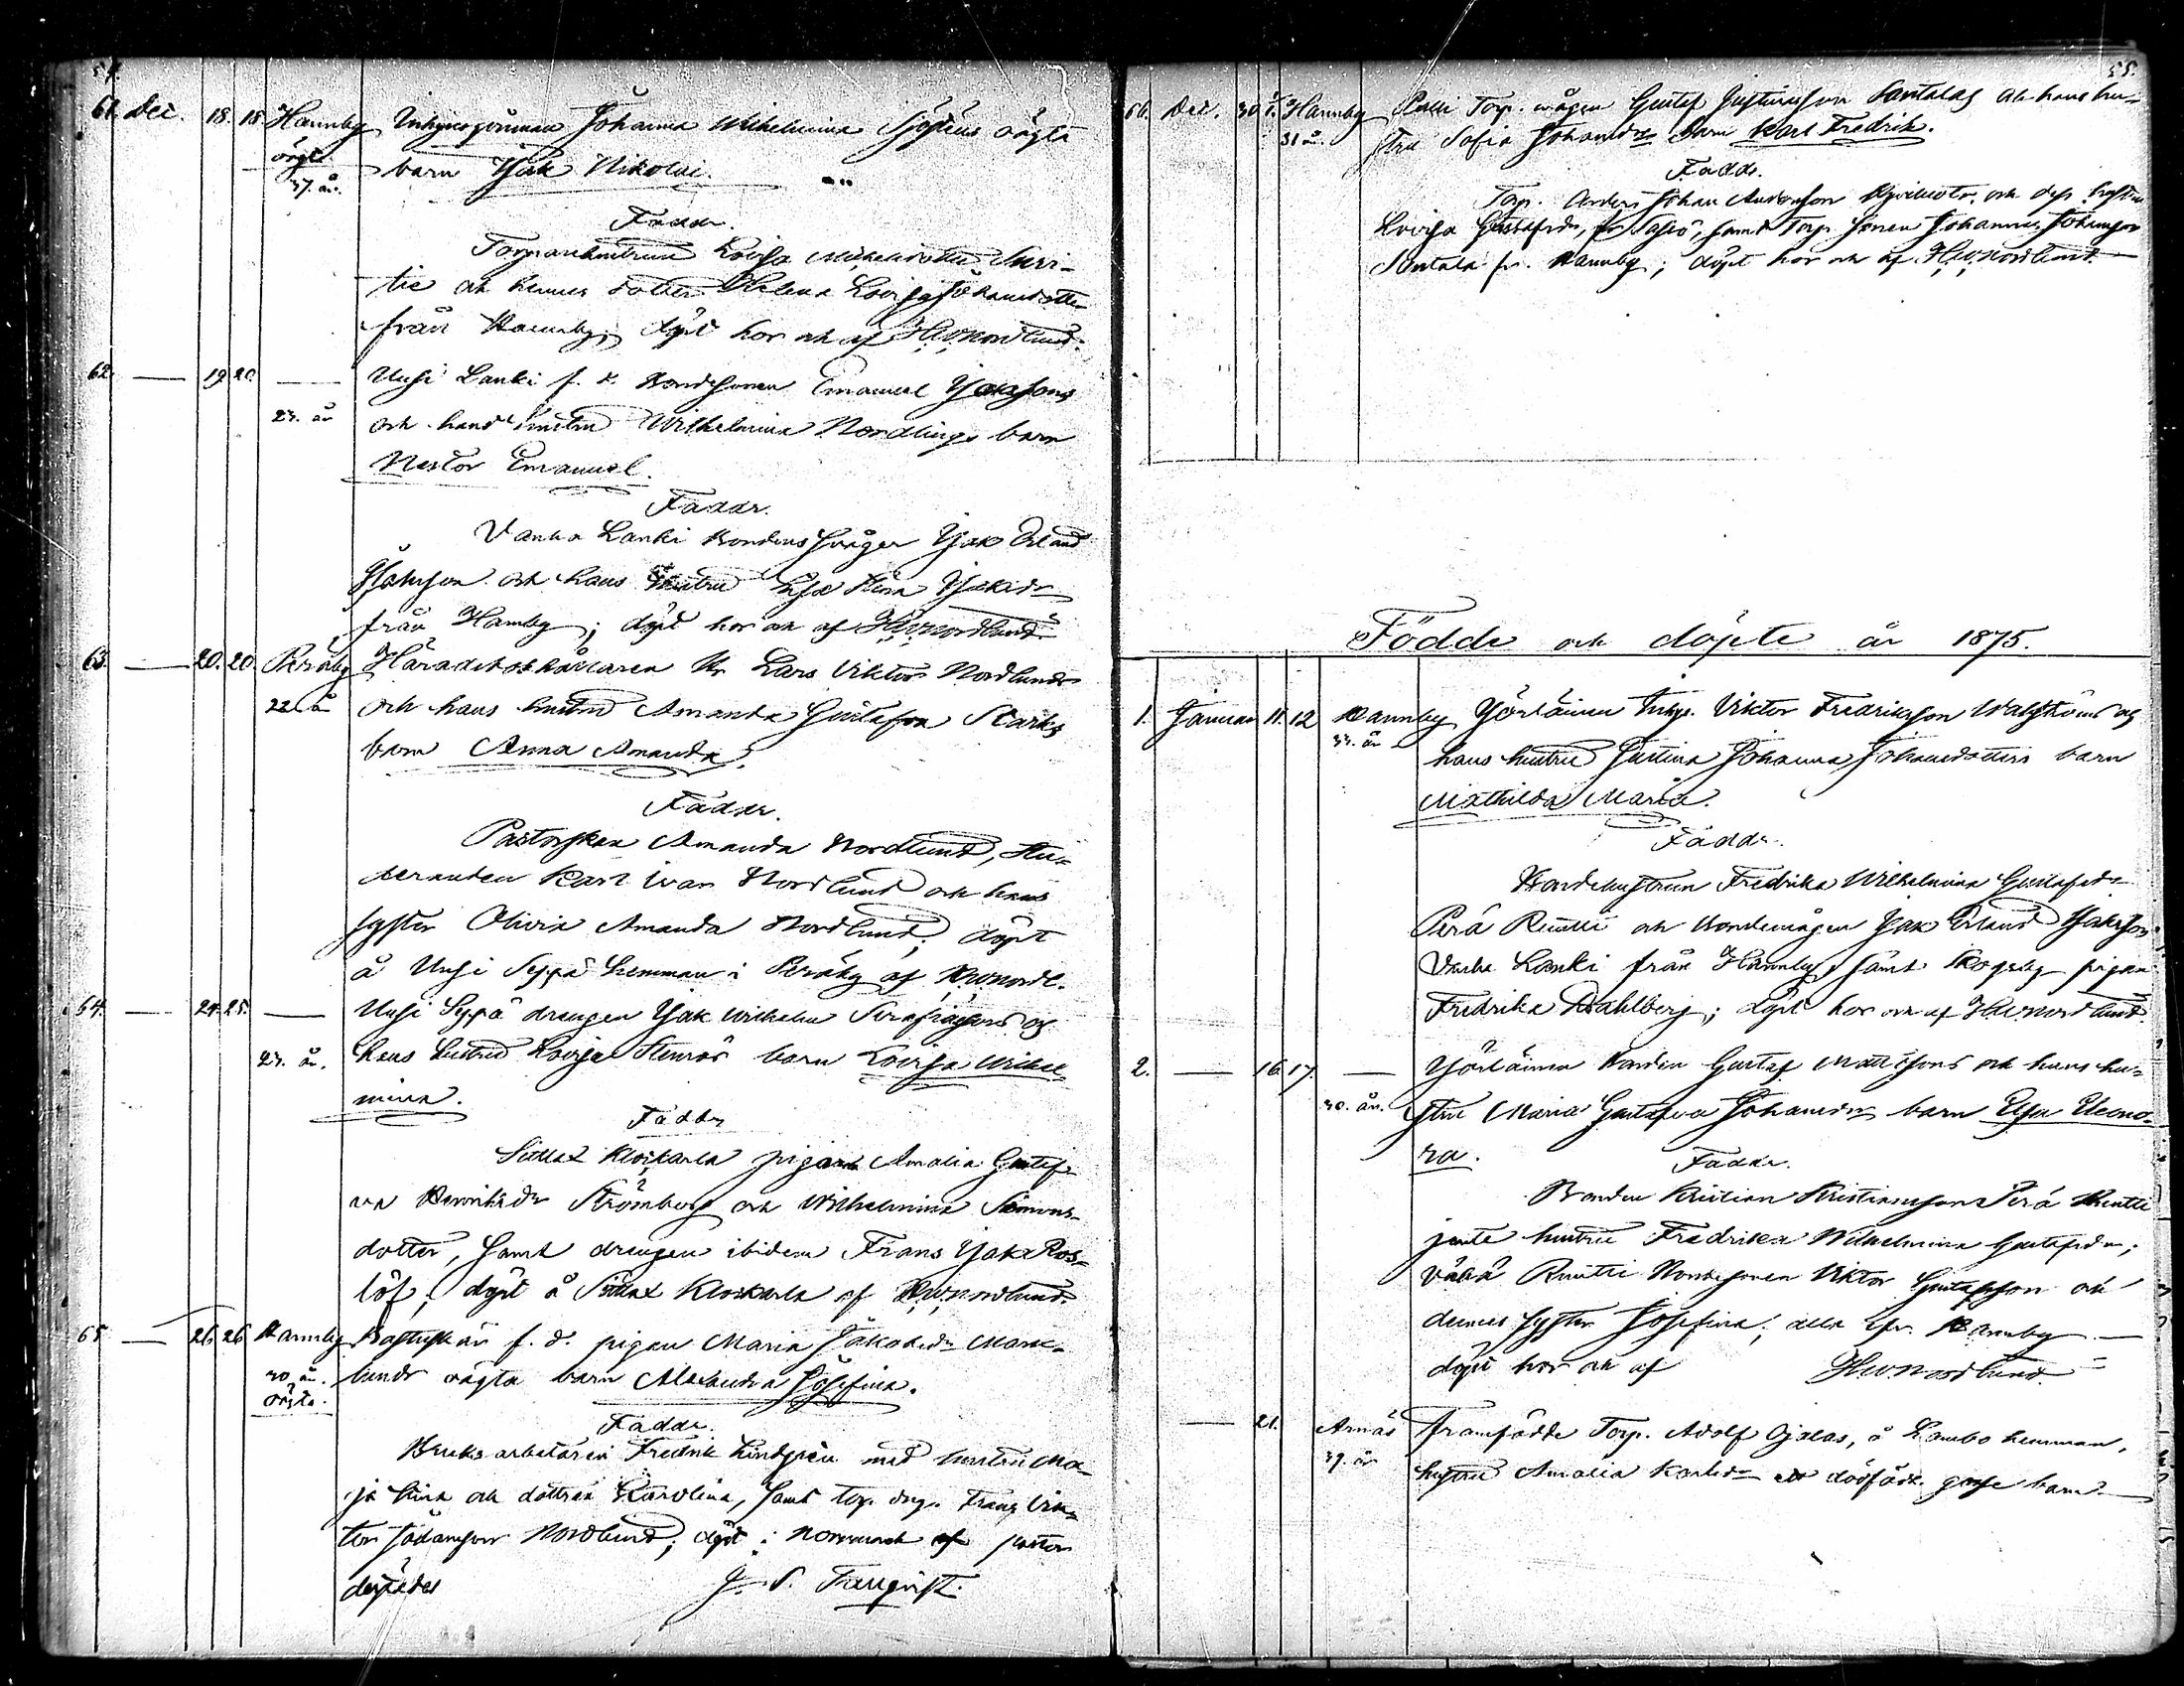 54.
61. Dec. 18. 18 Hannby Inhysesqvinnan Johanna Wilhelmina Sjöstens oägta
oägta 37. år. barn Isak Nikolai.
Faddr.
Torparehustrun Lovisa Michelsdotter
och hennes dotter Helena Lovisa Johansdotter
från Hannby; döpt hos och af HWNordlund.
62. — 19 20 — Uusi Lanki f. d. Bondesonen Emanuel Isakssons
23. år och hans hustru Wilhelmina Nordlings barn
Nestor Emanuel.
Faddr.
Vanha Lanki Bondens svåger Isak Erland
Isaksson och hans hustru Lisa Stina Isaksdr
från Hannby; döpt hos och af HWNordlund
63. — 20. 20. Peräby Häradsskrifvaren Hr Lars Viktor Nordlunds
22. år och hans hustru Amanda Gustafva Starks
barn Anna Amanda.
Faddr.
Pastorskan Amanda Nordlund, Stu-
deranden Karl Ivar Nordlund och hans
syster Olivia Amanda Nordlund; döpt
å Uusi Seppä hemman i Peräby af HWNordl.
64. — 24. 25. — Uusi Seppä drängen Isak Wilhelm Serafiassons och
23. år. hans hustru Lovisa Stenros barn Lovisa Wilhel-
mina.
Faddr
Klockarla pigorna Amalia Gustaf-
va Henriksdr Strömberg och Wilhelmina Simons-
dotter, samt drengen ibidem Frans Isak Ros-
löf; döpt å Klockarla af HWNordlund.
65 — 26. 26. Hannby f. d. pigan Maria Jakobsdr Mark-
20 år. oägta. lunds oägta barn Alexandra Josefina.
Faddr.
Bruks arbetaren Fredrik Lindgren med hustru Ma-
ja Stina och dottren Karolina, samt torp. drg. Frans Vik-
tor Nordlund; döpt i Norrmark af pastor
dersädes J. S. Tranqvist.
55.
66. Dec. 30 Hannby Torp. mågen Gustaf Gustafsson Santalas och hans hu-
31 år. stru Sofia Johansdr barn Karl Fredrik.
Faddr.
Torp. Anders Johan Andersson och dess hustru
Lovisa Gustafsdr, fr. Sassö, samt Torp. sonen Johannes Johansson
Santala fr. Hannby; döpt hos och af HWNordlund. —
Födde och döpte år 1875.
1. Januari 11. 12 Hannby Yörläinen Inhys. Viktor Fredriksson Wahlströms och
33. år hans hustru Justina Johanna Johansdotters barn
Mathilda Maria.
Faddr.
Bondehustrun Fredrika Wilhelmina Gustafsdr
Perä Ruutti och Bondemågen Isak Erland Isaksson
Vanha Lanki från Hannby, samt Skogsby pigan
Fredrika Dahlberg; döpt hos och af HWNordlund.
2. — 16. 17. — Yörläinen Bonden Gustaf Mattssons och hans hu-
30. år. stru Maria Gustafva Johansdr barn Elsa Eleono-
ra.
Faddr.
Bonden Kristian Kristiansson Perä Ruutti
jemte hustru Fredrika Wilhelmina Gustafsdr;
Vähä Ruutti Bondesonen Viktor Gustafsson och
dennes syster Josefina; alla fr. Hannby —
döpt hos och af HWNordlund.
— 21. Arnäs framfödde Torp. Adolf Ojalas, å Lambo hemman,
39. år hustru Amalia Karlsdr ett dödfödt gosse barn. —